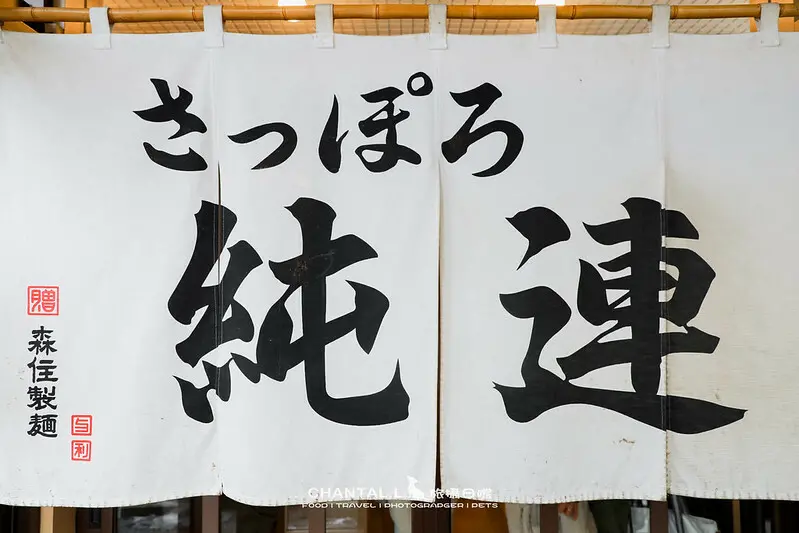 さっぽろ
純連
贈
森住製麺
与利
CHANTAL.L
FOOD | TRAVEL | PHOTOGRAPGER | PETS